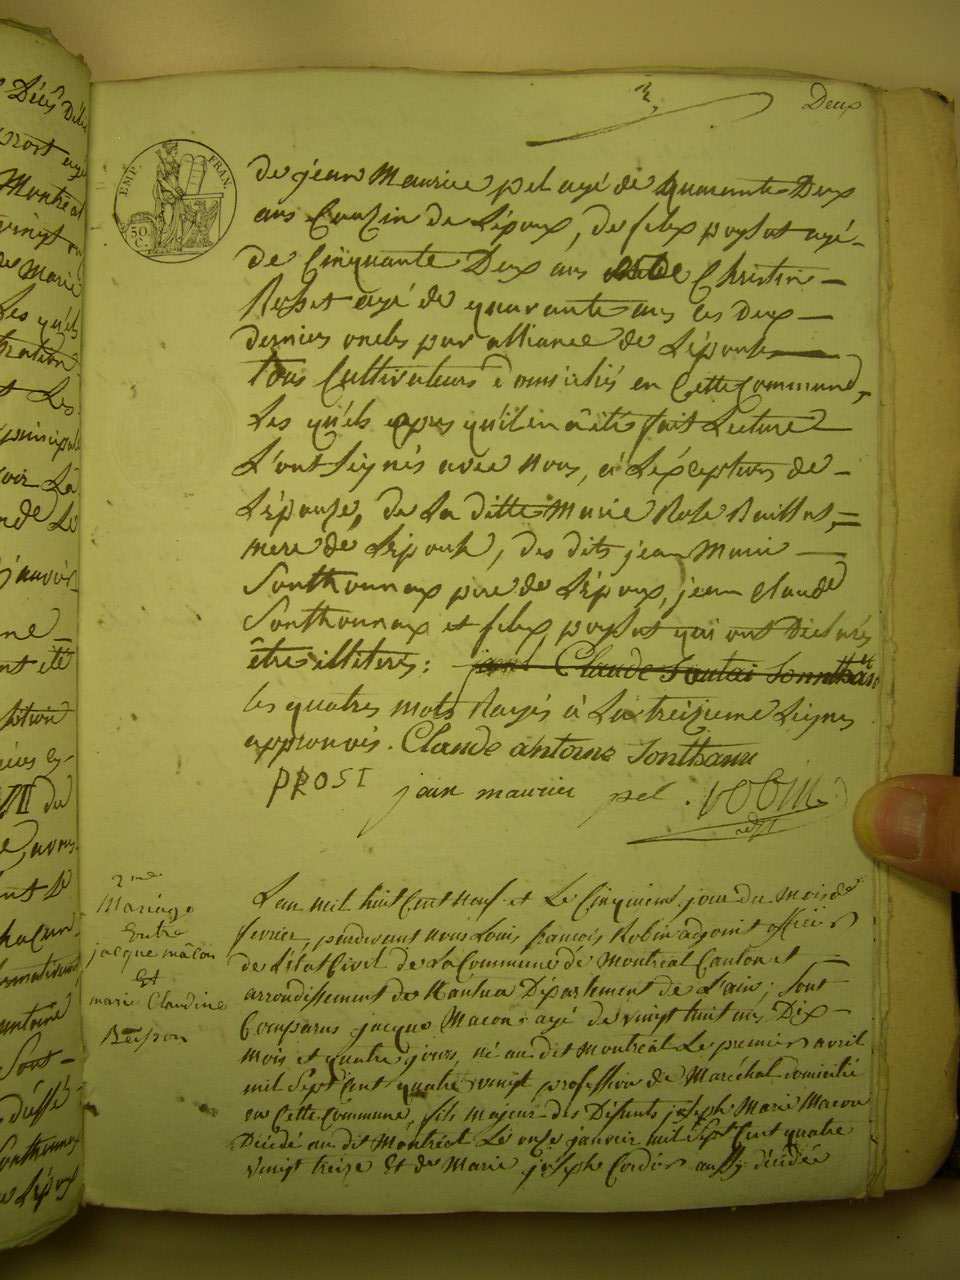 Deux
EMP. FRAN.
50 C.
de jéan Maurice pel agé de quarante Deux
ans Couzin de L'époux, de felix agé
de Cinquante Deux ans et de Christin
Rosset agé de quarante ans ces deux
derniers oncles par alliance de L'épouse
tous Cultivateurs domiciliés en Cette Commune,
Les qu'els apres qu'il en à été fait Lecture
L'ont signés avec nous, à L'éxception de
L'épouse, de La ditte Marie Rose
mere de L'épouse, des dits jean Marie
Sonthonnax pere de L'époux, jean Claude
Sonthonnax et felix qui ont Déclarés
être illiterés : Claude
les quatres mots Rayés à La treizieme Lignes
approuvés. Claude antoine Sonthonax
PROST jain maurice pel. robin
adjt
2me
Mariage
Entre
jacque mâcon
Et
marie Claudine
L'an mil huit Cent Neuf et Le Cinquieme jour du Mois de
fevrier pardevant nous Louis francois Robin adjoint officier
de L'état Civil de La Commune de Montréal Canton et
arrondissement de Nantua Département de L'ain ; sont
Comparus jacque Macon agé de vingt huit ans Dix
mois et quatre jours, né au dit Montréal Le premier avril
mil Sept Cent quatre vingt profession de Maréchal domicilié
en Cette Commune, fils majeur des Défunts joseph Marie Macon
Décédé au dit Montréal Le onze janvier mil Sept Cent quatre
vingt treize Et de Marie joseph aussy décédée